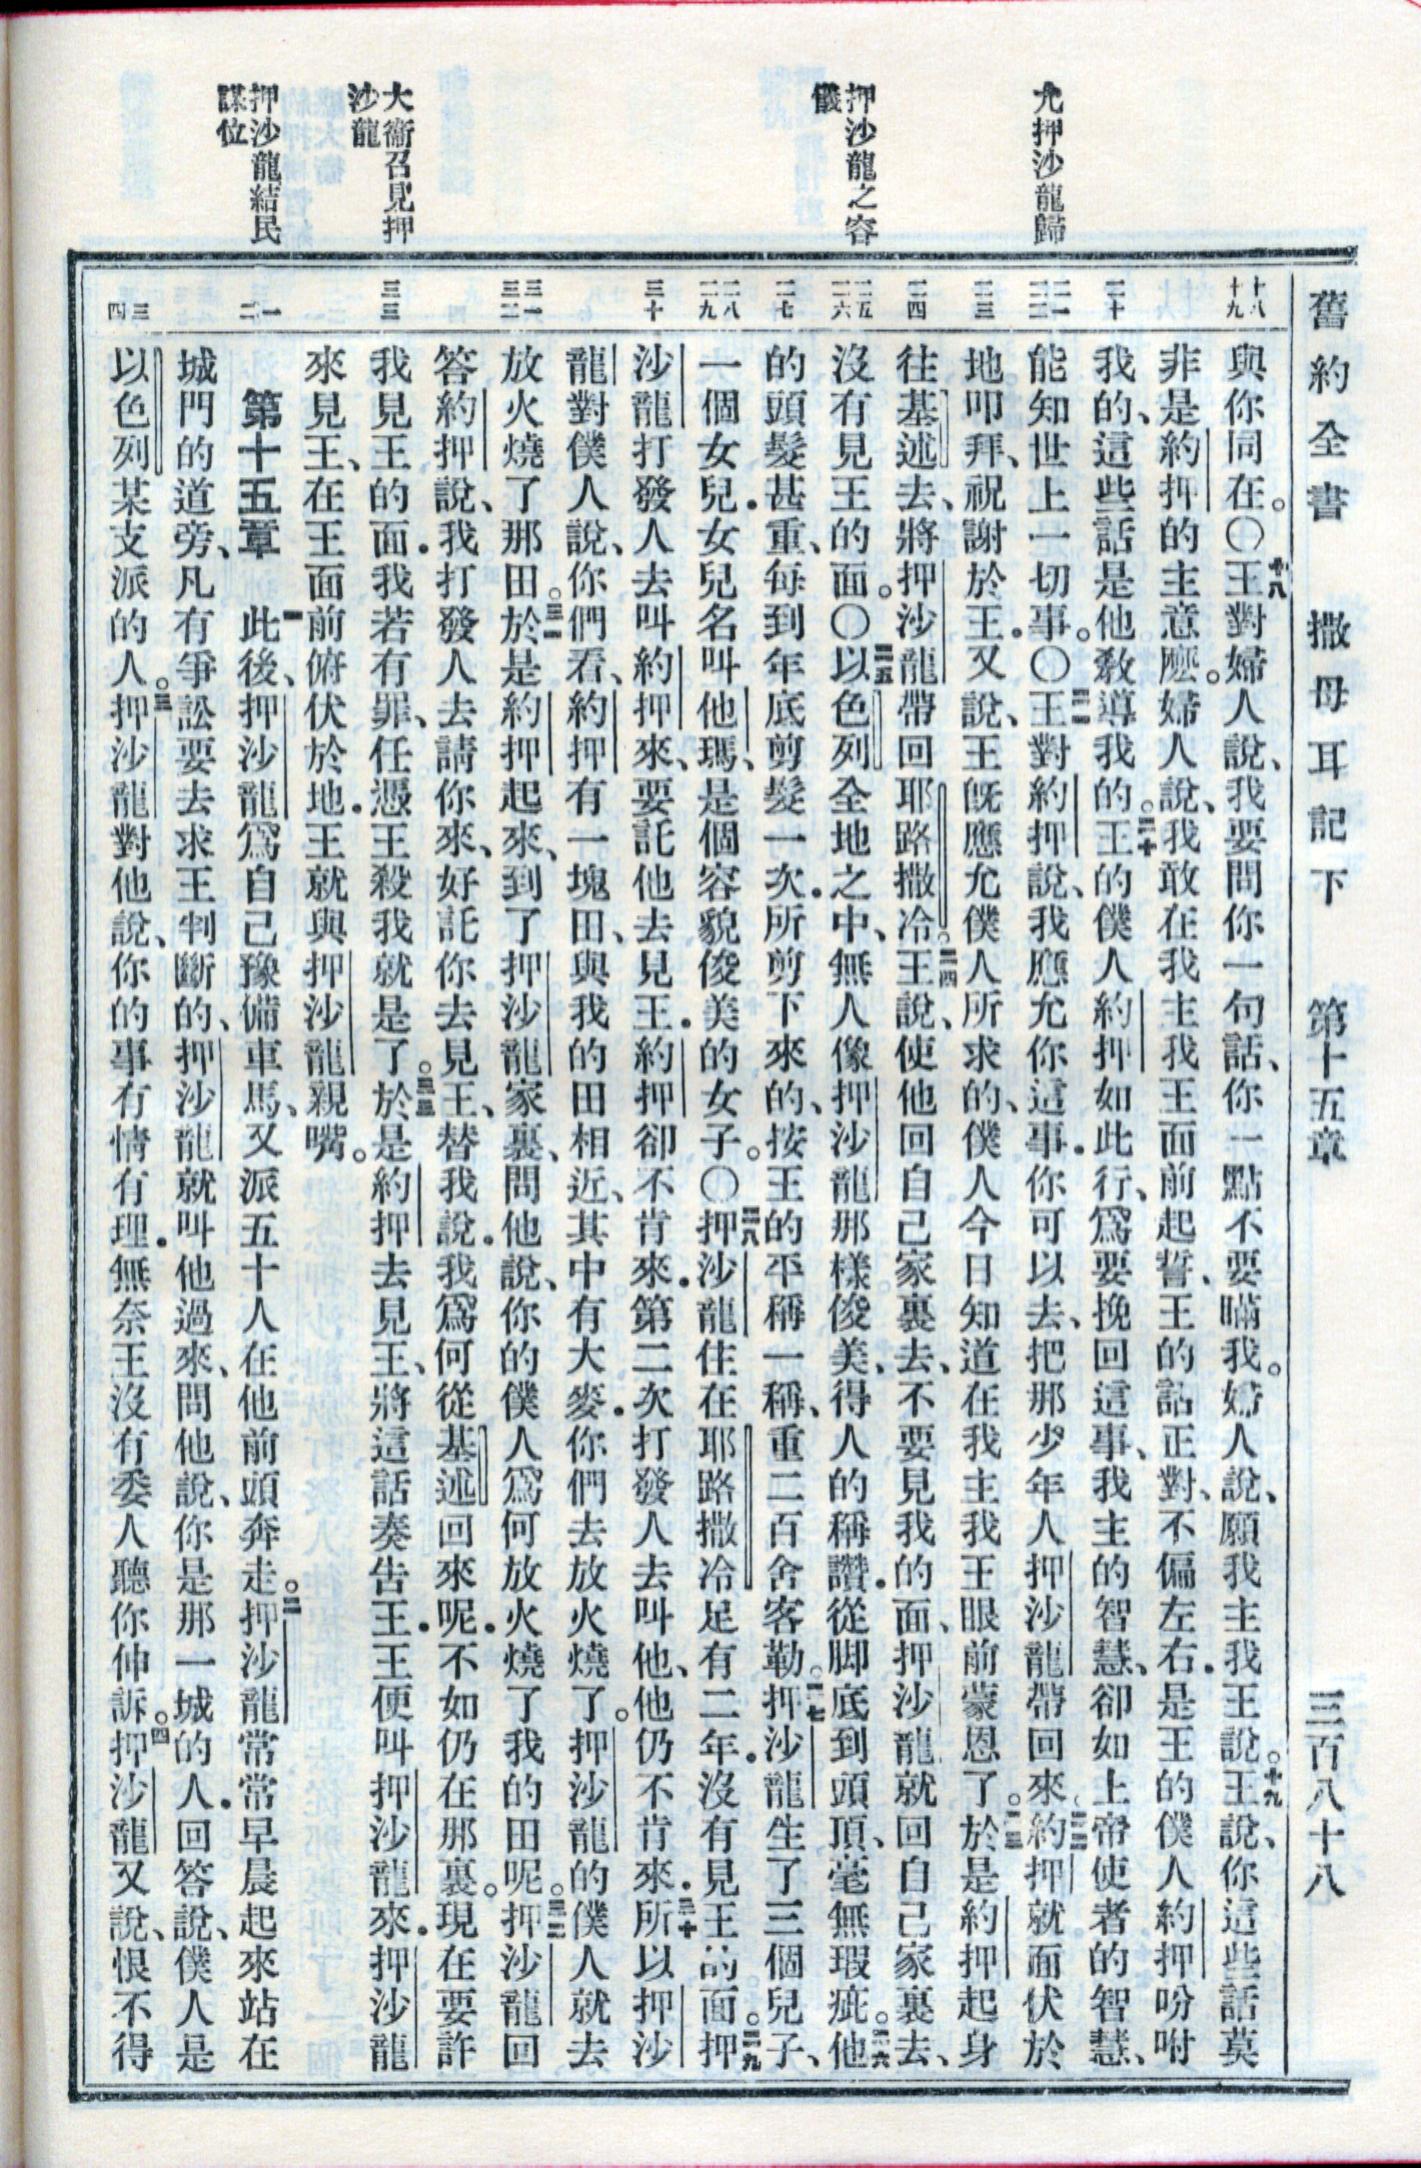 舊約全書 撒母耳記下 第十五章 三百八十八
允押沙龍歸
押沙龍之容
儀
大衞召見押
沙龍
押沙龍結民
謀位
十八
十九
二十
二一
二二
二三
二四
二五
二六
二七
二八
二九
三十
三一
三二
三三
一
二
三
四
與你同在。〇十八王對婦人說、我要問你一句話、你一點不要瞞我。婦人說、願我主我王說。十九王說、你這些話莫
非是約押的主意麽。婦人說、我敢在我主我王面前起誓、王的話正對、不偏左右．是王的僕人約押吩咐
我的、這些話是他敎導我的。二十王的僕人約押如此行、爲要挽回這事、我主的智慧、卻如上帝使者的智慧、
能知世上一切事。〇二一王對約押說、我應允你這事．你可以去、把那少年人押沙龍帶回來。二二約押就面伏於
地叩拜、祝謝於王．又說、王旣應允僕人所求的、僕人今日知道在我主我王眼前蒙恩了。二三於是約押起身
往基述去、將押沙龍帶回耶路撒冷。二四王說、使他回自己家裏去、不要見我的面、押沙龍就回自己家裏去、
沒有見王的面。〇二五以色列全地之中、無人像押沙龍那樣俊美、得人的稱讚．從脚底到頭頂、毫無瑕疵。二六他
的頭髮甚重、每到年底剪髮一次．所剪下來的、按王的平稱一稱、重二百舍客勒。二七押沙龍生了三個兒子、
一個女兒．女兒名叫他瑪、是個容貌俊美的女子。〇二八押沙龍住在耶路撒冷足有二年．沒有見王的面。二九押
沙龍打發人去叫約押來、要託他去見王．約押卻不肯來．第二次打發人去叫他、他仍不肯來．三十所以押沙
龍對僕人說、你們看、約押有一塊田、與我的田相近、其中有大麥．你們去放火燒了。押沙龍的僕人就去
放火燒了那田。三一於是約押起來、到了押沙龍家裏、問他說、你的僕人爲何放火燒了我的田呢。三二押沙龍回
答約押說、我打發人去請你來、好託你去見王、替我說．我爲何從基述回來呢．不如仍在那裏。現在要許
我見王的面．我若有罪、任憑王殺我就是了。三三於是約押去見王、將這話奏吿王．王便叫押沙龍來．押沙龍
來見王、在王面前俯伏於地．王就與押沙龍親嘴。
第十五章 一此後、押沙龍爲自己豫備車馬、又派五十人在他前頭奔走。二押沙龍常常早晨起來站在
城門的道旁、凡有爭訟要去求王判斷的、押沙龍就叫他過來、問他說、你是那一城的人．回答說、僕人是
以色列某支派的人。三押沙龍對他說、你的事有情有理．無奈王沒有委人聽你伸訴。四押沙龍又說、恨不得